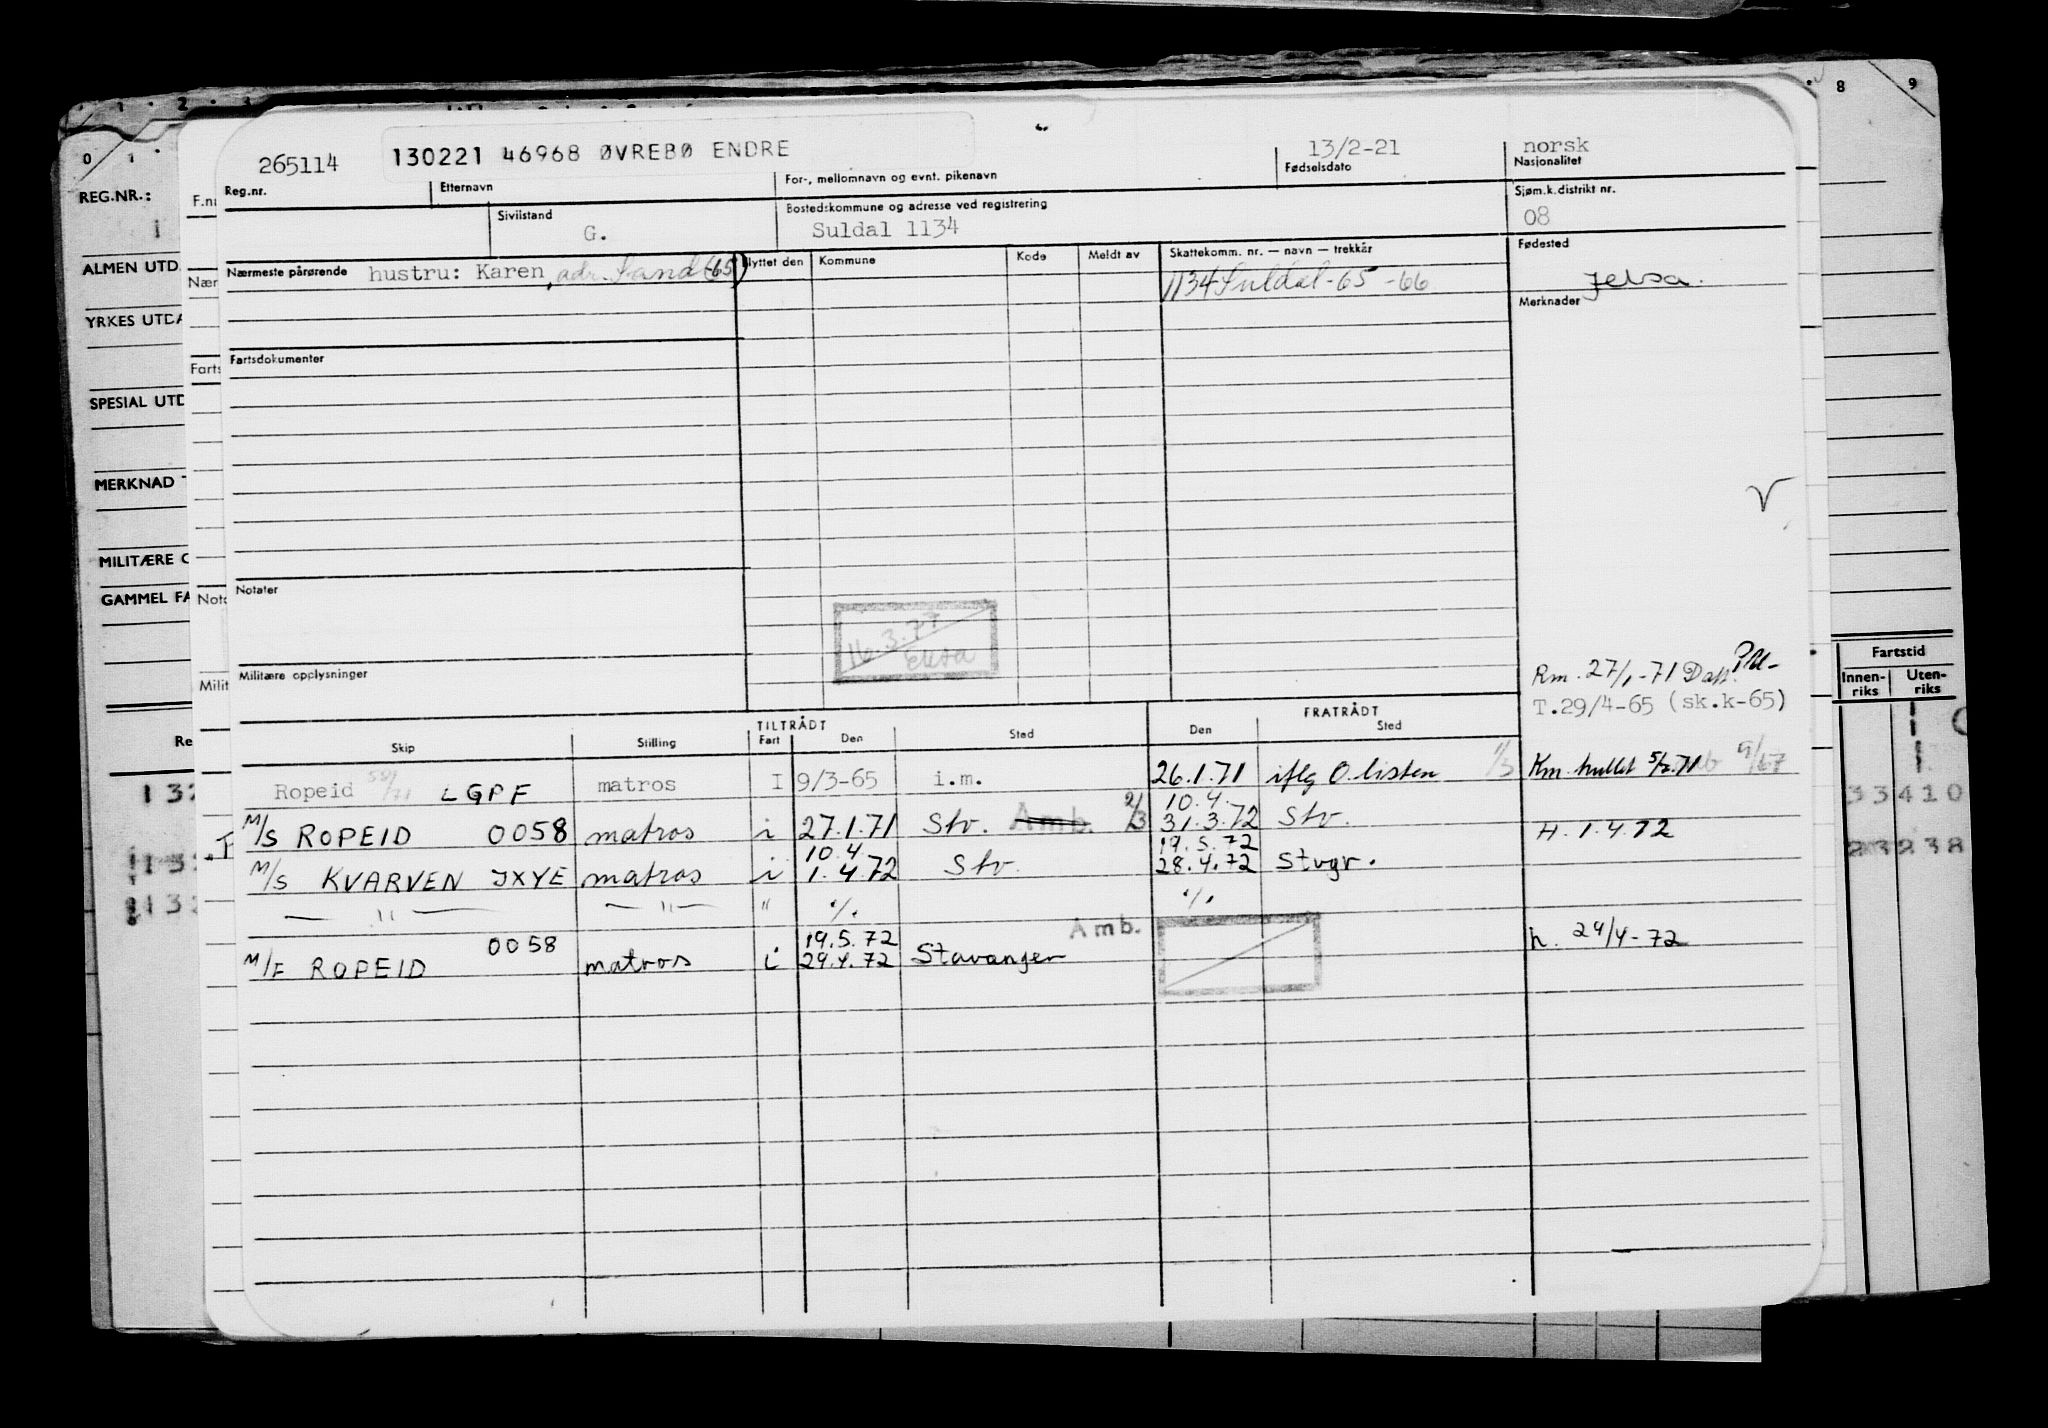 0 1 2 3 8 9
265114 130221 46968 ØVREBØ ENDRE 13/2-21 norsk
Reg.nr. Etternavn For-, mellomnavn og evnt. pikenavn Fødselsdato Nasjonalitet
REG.NR.:
Sivilstand Bostedskommune og adresse ved registrering Sjøm.k.distrikt nr.
G. Suldal 1134 08
ALMEN UTD
Nærmeste pårørende hustru: Karen, adr. Sand (65) Flyttet den Kommune Kode Meldt av Skattekomm. nr. — navn — trekkår Fødested
1134 Suldal-65 -66 Jelsa.
Merknader
YRKES UTDA
Fartsdokumenter
SPESIAL UTD
MERKNAD
V
MILITÆRE
GAMMEL FA
Notater
16.3.77
Eksa
Militære opplysninger
Fartstid
Innen-riks Uten-riks
Rm. 27/1-71
T.29/4-65 (sk.k-65)
TILTRÅDT FRATRÅDT
Skip Stilling Fart Den Sted Den Sted
Ropeid LGPF matros I 9/3-65 i.m. 26.1.71 iflg O.listen 1/3 Km. hullet 5/2.71 9/67
M/S ROPEID 0058 matros i 27.1.71 Stv. Amb. 2/3 10.4. 31.3.72 Stv. H. 1.4.72
M/S KVARVEN JXYE matros i 10.4. 1.4.72 Stv. 19.5.72 28.4.72 Stvgr.
— " — — " — " ./. ./.
M/F ROPEID 0058 matros i 19.5.72 29.4.72 Stavanger Amb. h. 29/4-72
33410
23238